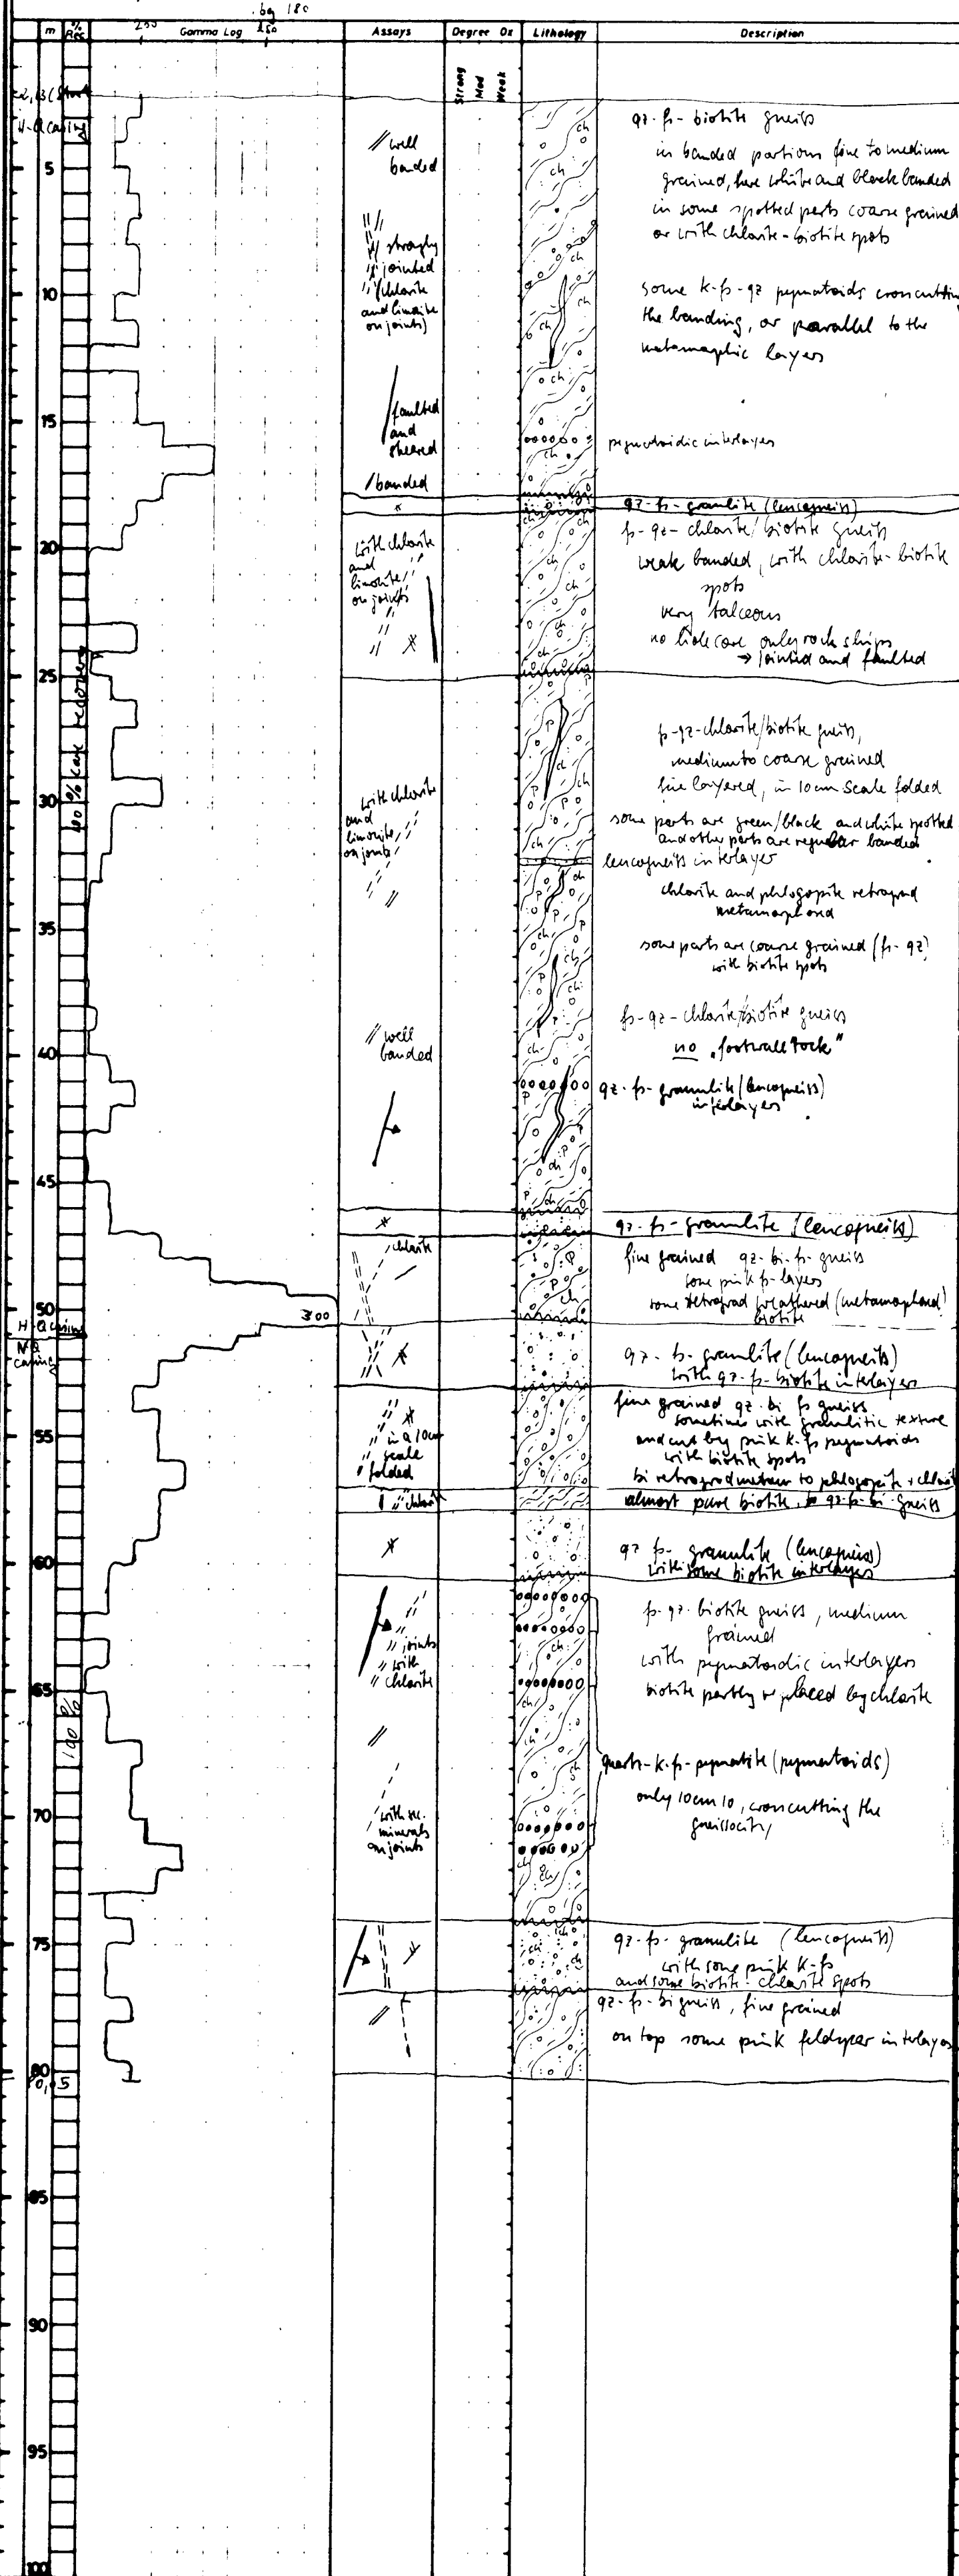 bg 180
m % Rec 200 Gamma Log 250 Assays Degree Ox Lithology Description
Strong Mod Weak
H-Q casing
5
10
15
20
25
30
35
40
45
50
55
60
65
70
75
80
85
90
95
100
H-Q casing
NQ
casing
% core recovery
100 %
300
// well
banded
strongly
jointed
(chlorite
and limonite
on joints)
faulted
and
sheared
/ banded
with chlorite
and
limonite
on joints
with chlorite
and
limonite
on joints
// well
banded
chlorite
in a 10cm
scale
folded
joints
with
chlorite
with
minerals
on joints
qz-fs-biotite gneiss
in banded portions fine to medium
grained, here white and black banded
in some spotted parts coarse grained
or with chlorite-biotite spots
some K-fs-qz pegmatoids crosscutting
the banding, or parallel to the
metamorphic layers
pegmatoidic interlayers
qz-fs-granulite (leucogneiss)
fs-qz-chlorite/biotite gneiss
weak banded, with chlorite-biotite
spots
very talceous
no core only rock ships
→ jointed and faulted
fs-qz-chlorite/biotite gneiss,
medium to coarse grained
fine layered, in 10cm scale folded
some parts are green/black and white spotted
and other parts are regular banded
leucogneiss interlayer
chlorite and phlogopite retrograd
metamorphosed
some parts are coarse grained (fs-qz)
with biotite spots
fs-qz-chlorite/biotite gneiss
no "footwall rock"
qz-fs-granulite (leucogneiss)
interlayers
qz-fs-granulite (leucogneiss)
fine grained qz-bi-fs-gneiss
some pink fs-layers
some retrograd weathered (metamorphosed)
biotite
qz-fs-granulite (leucogneiss)
with qz-fs-biotite interlayers
fine grained qz-bi fs gneiss
sometimes with granulitic texture
and cut by pink K-fs pegmatoids
with biotite spots
bi retrograd metam to phlogopite + chlorit
almost pure biotite, qz-fs-bi-gneiss
qz fs-granulite (leucogneiss)
with some biotite interlayers
fs-qz-biotite gneiss, medium
grained
with pegmatoidic interlayers
biotite partly replaced by chlorite
quartz-K-fs-pegmatite (pegmatoids)
only 10cm, crosscutting the
gneissocity
qz-fs-granulite (leucogneiss)
with some pink K-fs
and some biotite-chlorite spots
qz-fs-bi gneiss, fine grained
on top some pink feldspar interlayers